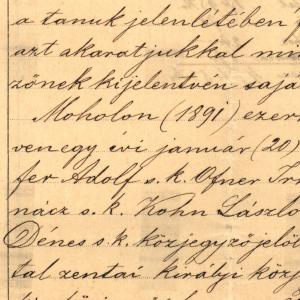 a tanuk jelenlétében
azt akaratjukkal min
zőnek kijelentvén sajá
Moholon (1891) ezer
ven egy évi január (20)
fer Adolf s. k. Ofner Ir
nácz s. k. Kohn László
Dénes s. k. közjegyzőjelöl
tal zentai királyi közj